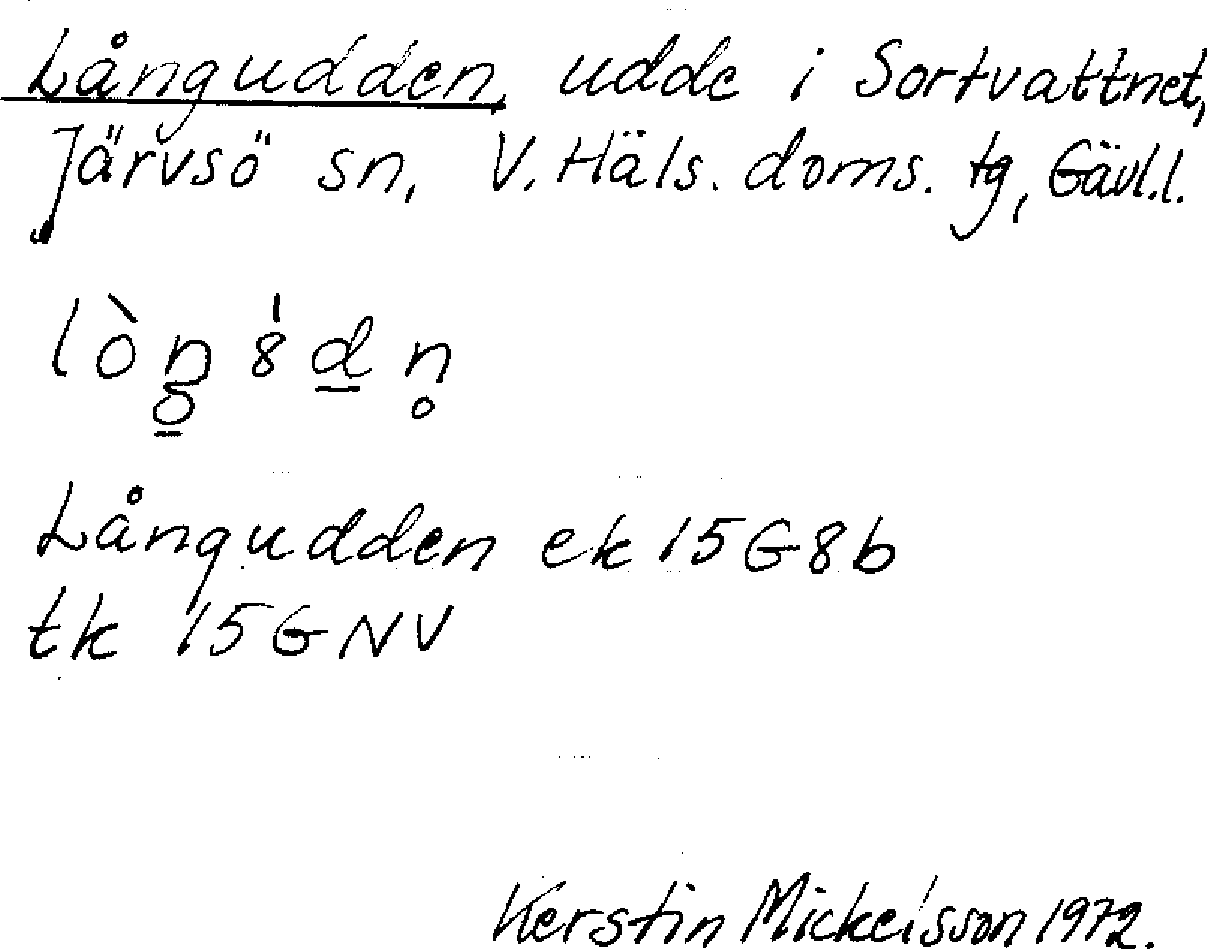 Långudden, udde i Sortvattnet,
Järvsö sn, V. Häls. doms. tg, Gävl.l.
lòŋ̲8̍d̲n̥
Långudden ek 15G8b
tk 15GNV
Kerstin Mickelsson 1972.